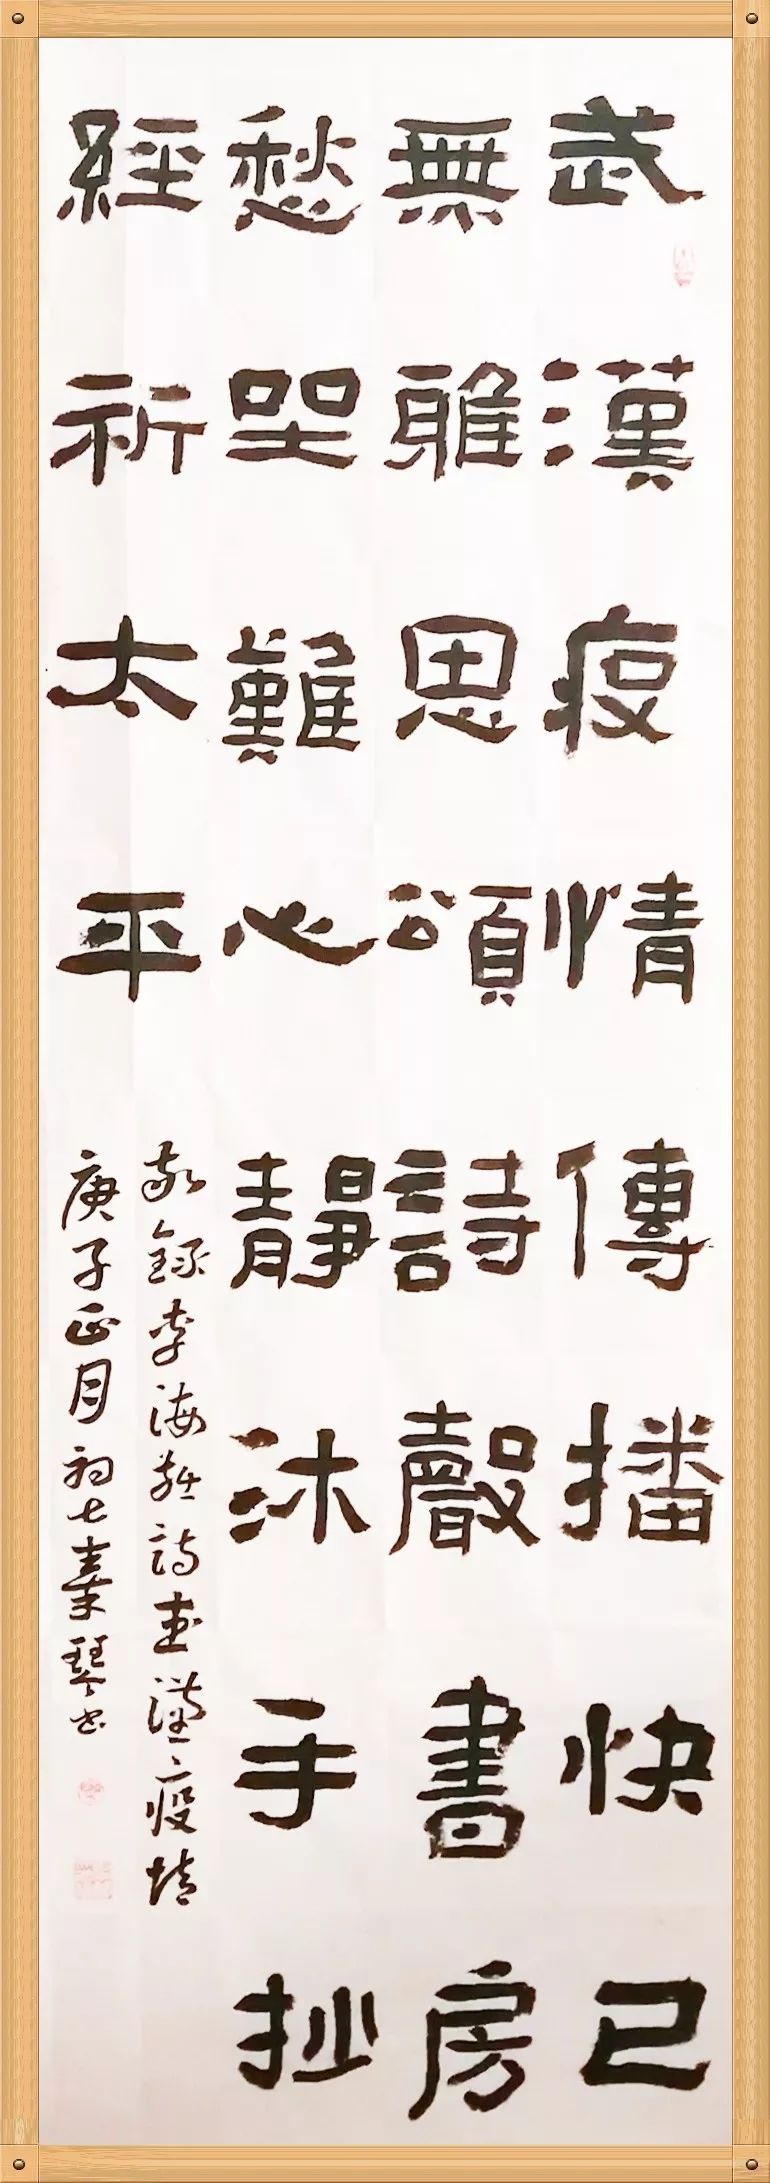 武漢疫情傳播快已
無雅思頌詩聲書房
愁坐難心靜沐手抄
經祈太平
敬錄李海燕詩武漢疫情
庚子正月初七秦琴書